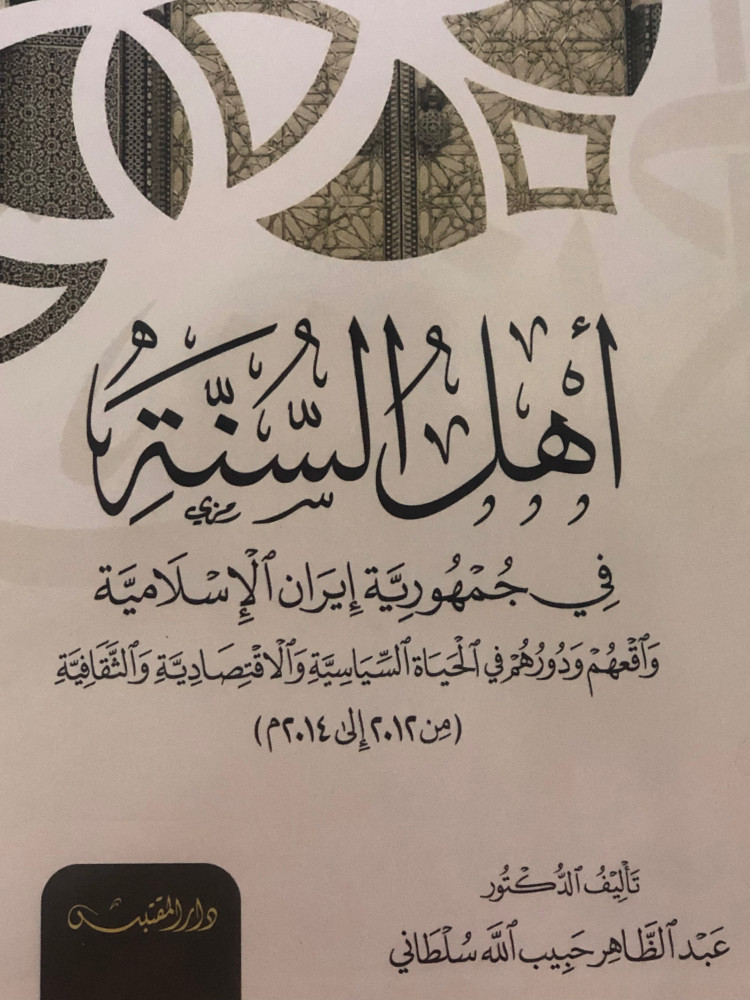 أَهْلُ السُّنَّةِ
رمزي
فِي جُمْهُورِيَّة إِيرَان الْإِسْلَاميَّة
وَاقْعهُمْ وَدُورُهُمْ في الْحَيَاة السِّيَاسِيَّةِ وَالْاقْتِصَادِيَّةِ وَالثَّقَافِيَّةِ
(مِن ٢٠١٢ إِلىٰ ٢٠١٤م)
تَأْلِيْفُ الدُّكْتُور
عَبْد الظَّاهِر حَبِيب اللَّه سُلْطَاني
دار المقتبس